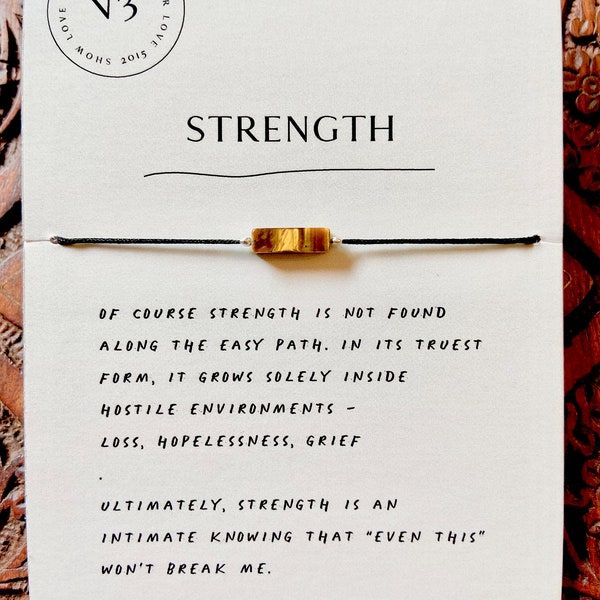 V3
SHOW LOVE
2015
LOVE
STRENGTH
OF COURSE STRENGTH IS NOT FOUND
ALONG THE EASY PATH. IN ITS TRUEST
FORM, IT GROWS SOLELY INSIDE
HOSTILE ENVIRONMENTS –
LOSS, HOPELESSNESS, GRIEF
.
ULTIMATELY, STRENGTH IS AN
INTIMATE KNOWING THAT "EVEN THIS"
WON'T BREAK ME.